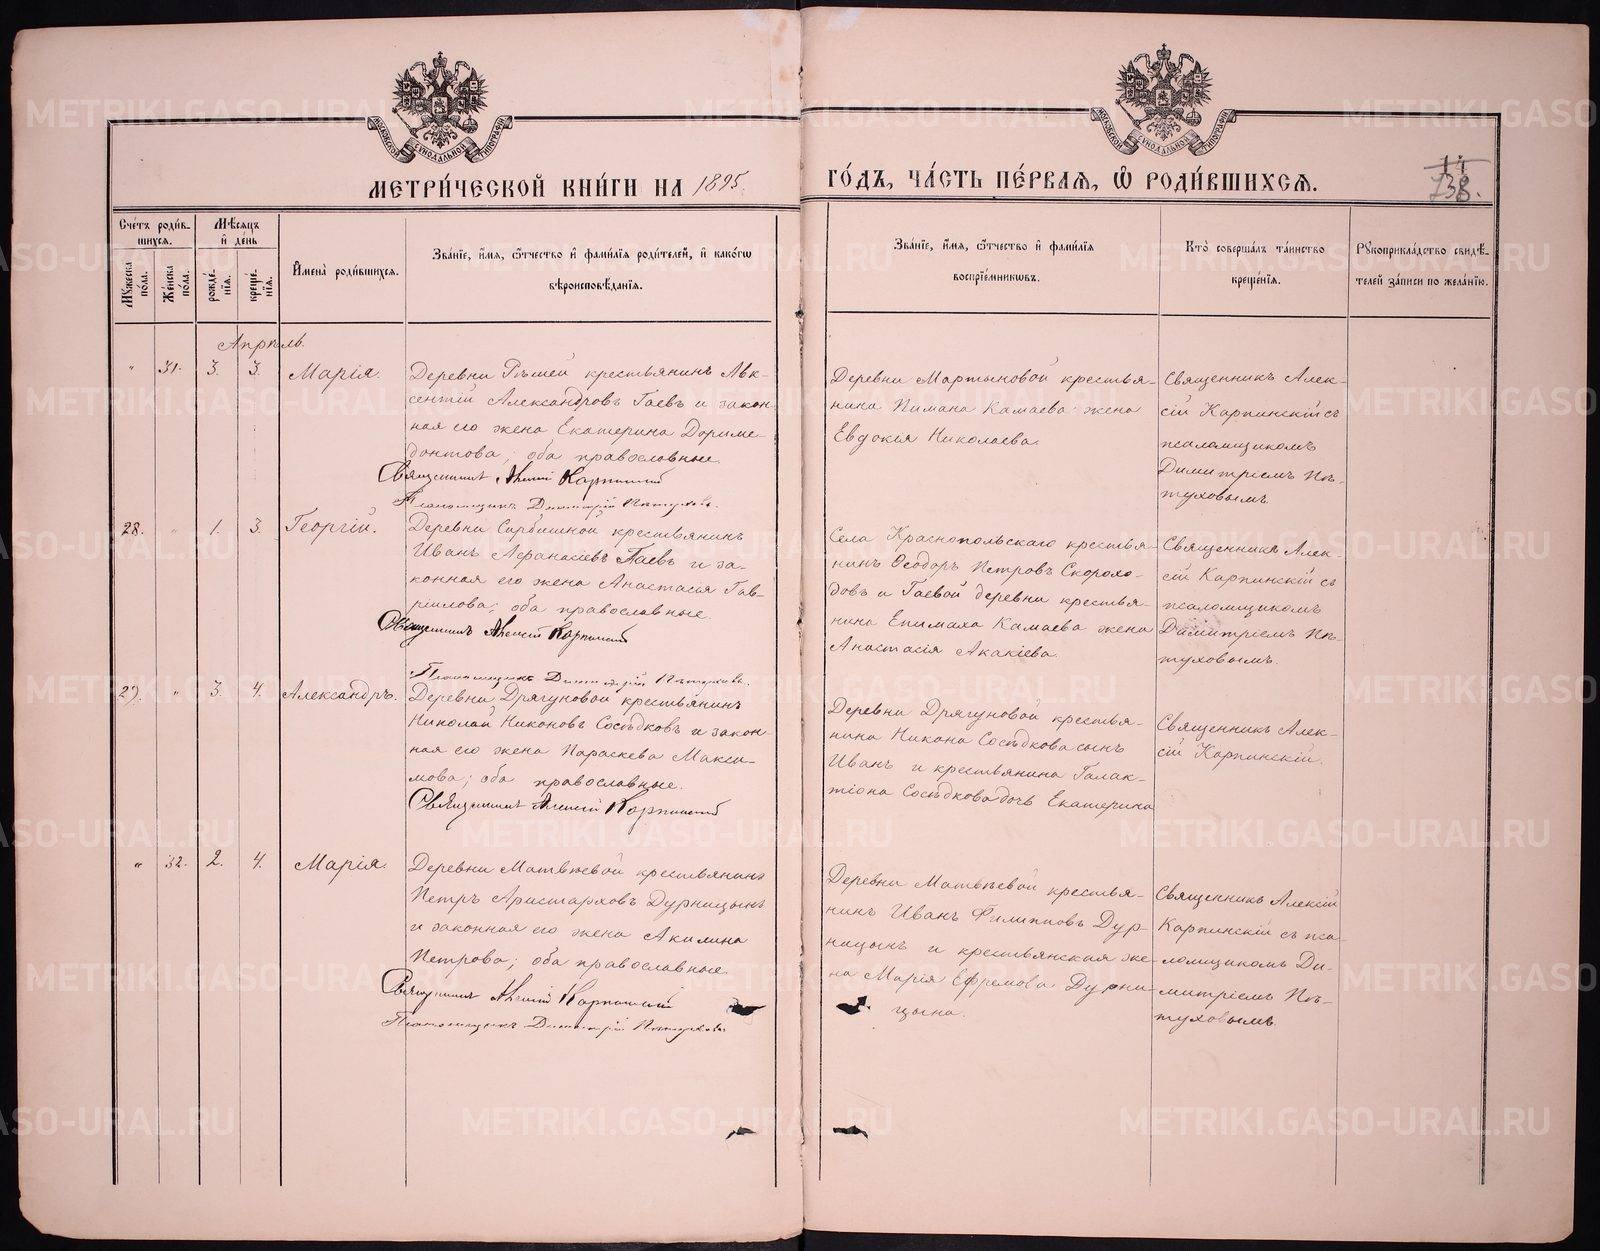 МЕТРИ́ЧЕСКОЙ КНИ́ГИ НА 1895.
ГО́ДЪ, ЧА́СТЬ ПЕ́РВАЯ, Ѿ РОДИ́ВШИХСЯ.
14
738.
МОСКОВСКОЙ СѴНОДАЛЬНОЙ ТИПОГРАФІИ
МОСКОВСКОЙ СѴНОДАЛЬНОЙ ТИПОГРАФІИ
Сче́тъ роди́в-
шихся.
Мꙋжеска по́ла.
Же́нска по́ла.
Мѣ́сяцъ
и҆ де́нь
рожде́-
нїя.
креще́-
нїя.
И҆мена̀ роди́вшихся.
Зва́нїе, и҆́мя, ѻ҆́тчество и҆ фами́лїя роди́телей, и҆ како́гѡ
вѣроисповѣ́данїя.
Зва́нїе, и҆́мя, ѻ҆́тчество и҆ фами́лїя
воспрїе́мниковъ.
Кто̀ соверша́лъ та́инство
креще́нїя.
Рꙋкоприкла́дство свидѣ́-
телей за́писи по жела́нїю.
Апрѣль.
" 31. 3. 3. Марія.
Деревни Рѣшей крестьянинъ Авк-
сентій Александровъ Гаевъ и закон-
ная его жена Екатерина Дориме-
донтова; оба православные.
Священникъ Алексій Карпинскій
Псаломщикъ Димитрій Пѣтуховъ.
Деревни Мартыновой крестья-
нина Пимана Камаева жена
Евдокія Николаева.
Священникъ Алек-
сій Карпинскій съ
псаломщикомъ
Димитріемъ Пѣ-
туховымъ.
28. " 1. 3. Георгій.
Деревни Сарбишной крестьянинъ
Иванъ Афанасіевъ Гаевъ и за-
конная его жена Анастасія Гав-
ріилова; оба православные.
Священникъ Алексій Карпинскій
Псаломщикъ Димитрій Пѣтуховъ.
Села Краснопольскаго крестья-
нинъ Ѳеодоръ Петровъ Скорохо-
довъ и Гаевой деревни крестья-
нина Епимаха Камаева жена
Анастасія Акакіева.
Священникъ Алек-
сій Карпинскій съ
псаломщикомъ
Димитріемъ Пѣ-
туховымъ.
29. " 3. 4. Александръ.
Деревни Дрягуновой крестьянинъ
Николай Никоновъ Сосѣдковъ и закон-
ная его жена Параскева Макси-
мова; оба православные.
Священникъ Алексій Карпинскій
Деревни Дрягуновой крестья-
нина Никона Сосѣдкова сынъ
Иванъ и крестьянина Галак-
тіона Сосѣдкова дочь Екатерина
Священникъ Алек-
сій Карпинскій.
" 32. 2. 4. Марія.
Деревни Матвѣевой крестьянинъ
Петръ Аристарховъ Дурницынъ
и законная его жена Акилина
Петрова; оба православные.
Священникъ Алексій Карпинскій
Псаломщикъ Димитрій Пѣтуховъ
Деревни Матвѣевой крестья-
нинъ Иванъ Филипповъ Дур-
ницынъ и крестьянская же-
на Марія Ефремова Дурни-
цына.
Священникъ Алексій
Карпинскій съ пса-
ломщикомъ Ди-
митріемъ Пѣ-
туховымъ.
METRIKI.GASO-URAL.RU